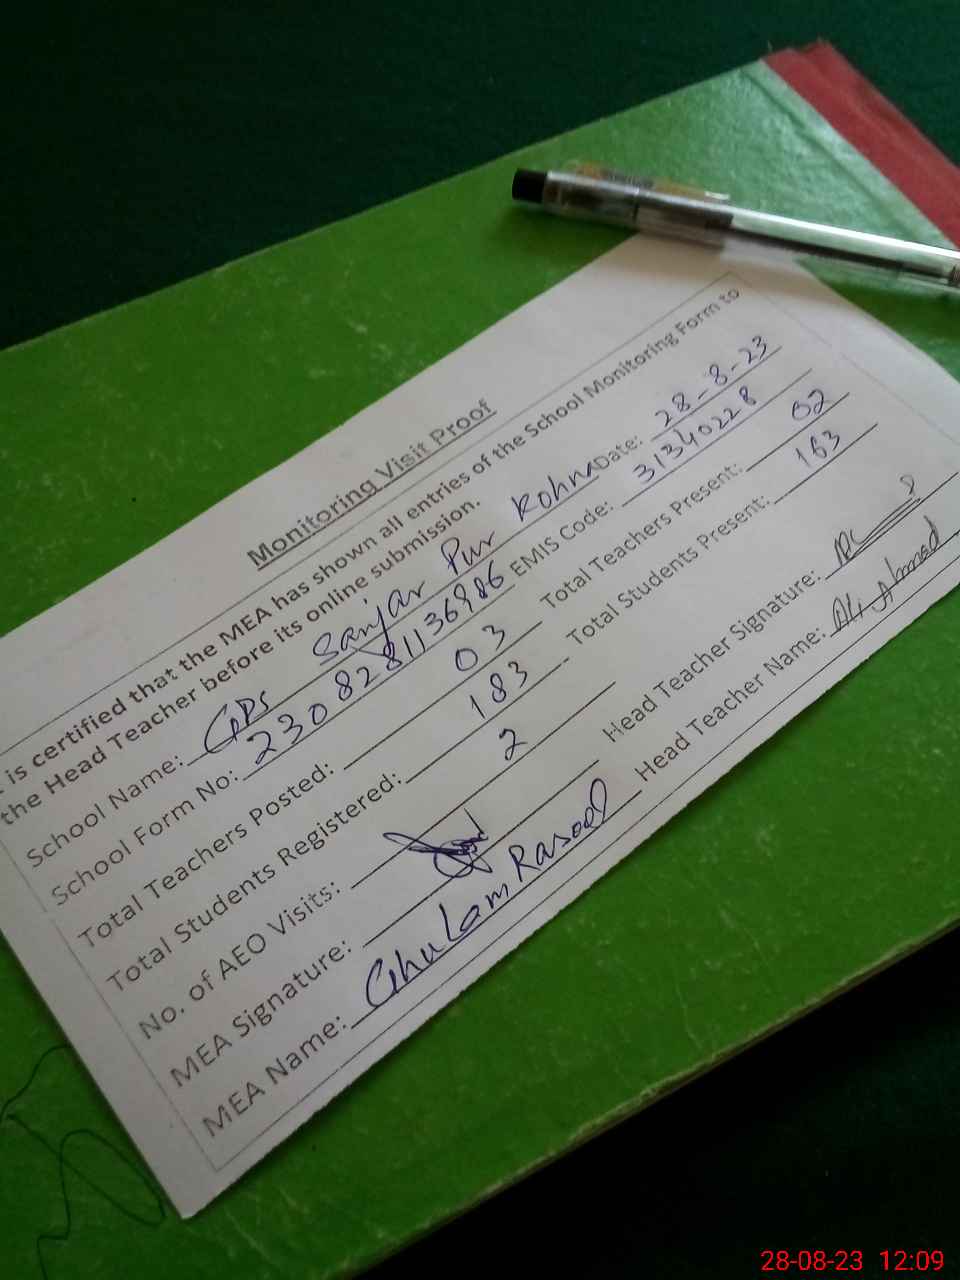 Monitoring Visit Proof
is certified that the MEA has shown all entries of the School Monitoring Form to
the Head Teacher before its online submission.
School Name: GPS Sanjar Pur Kohna Date: 28-8-23
School Form No: 2308281136986 EMIS Code: 31340228
Total Teachers Posted: 03 Total Teachers Present: 02
Total Students Registered: 183 Total Students Present: 163
No. of AEO Visits: 2
MEA Signature: Head Teacher Signature:
MEA Name: Ghulam Rasool Head Teacher Name: Ali Ahmad
28-08-23 12:09